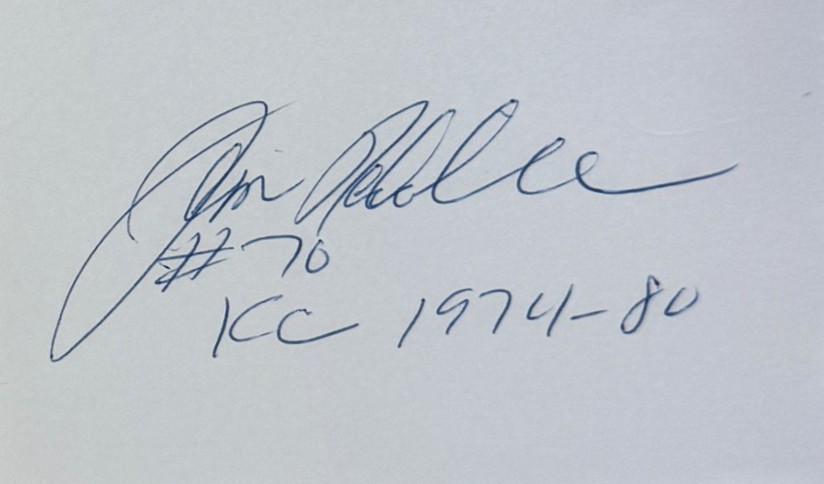 Jim
#70
KC 1974-80